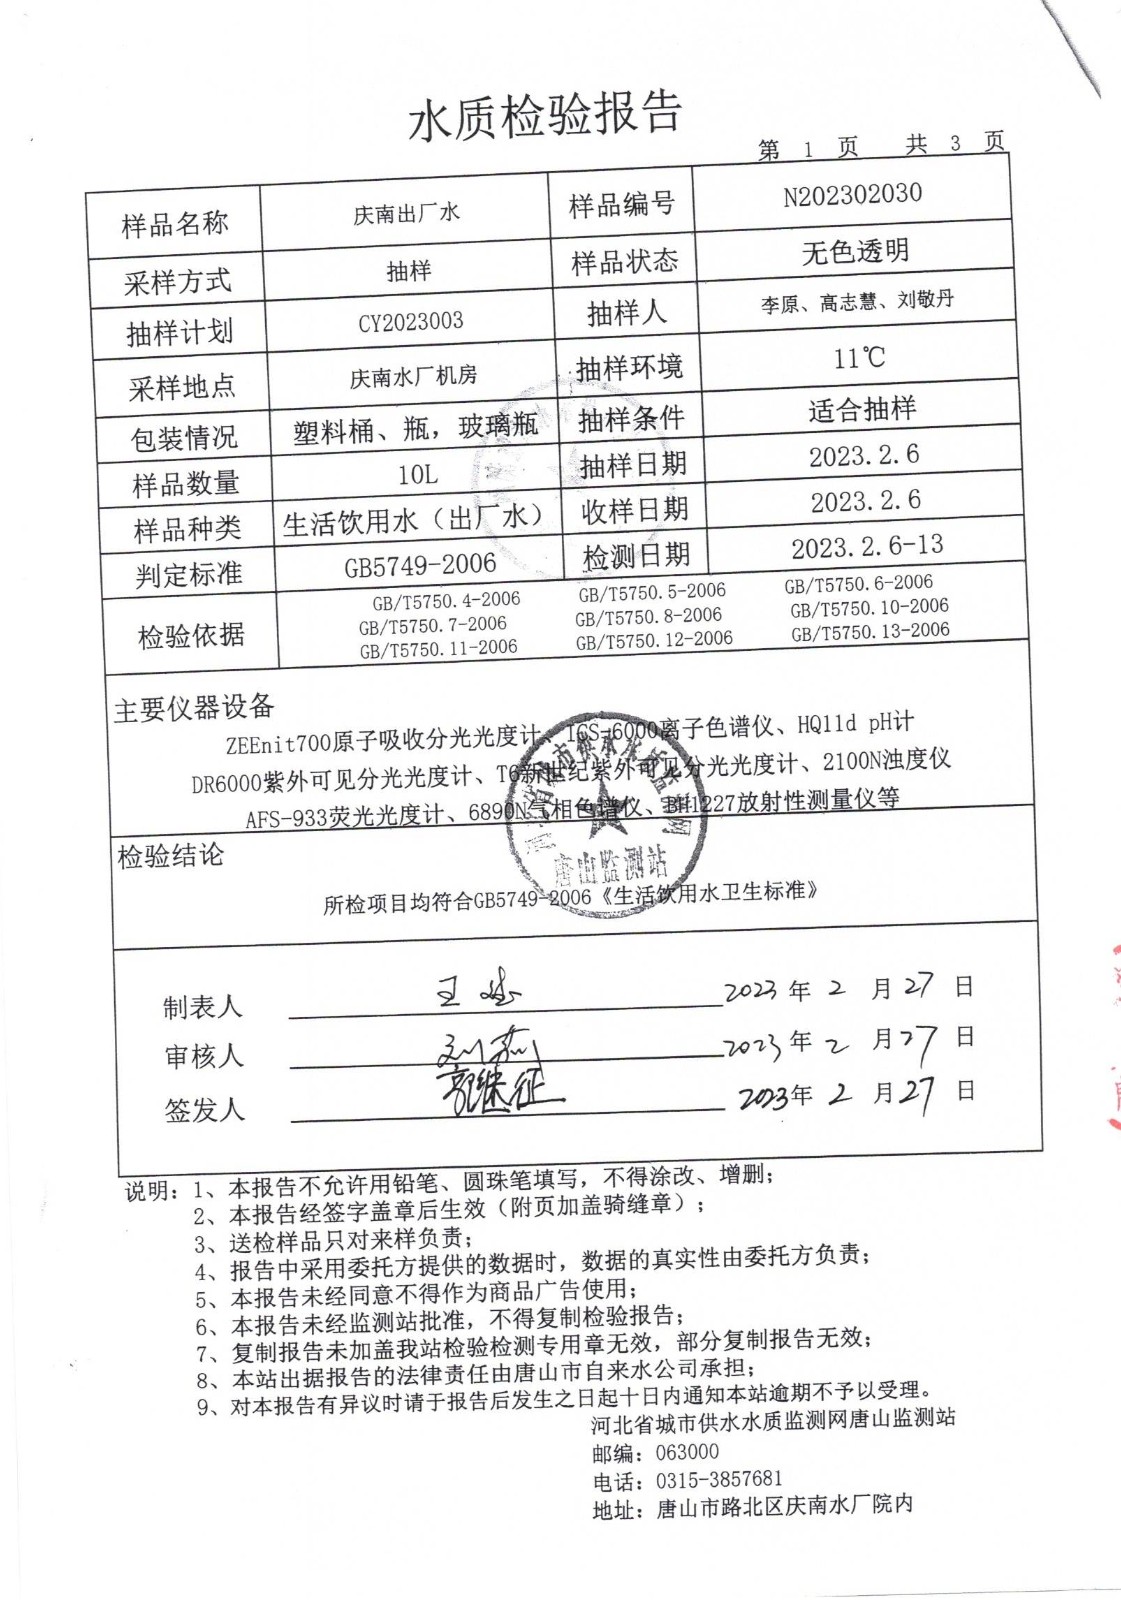 水质检验报告
第 1 页 共 3 页
样品名称 庆南出厂水 样品编号 N202302030
采样方式 抽样 样品状态 无色透明
抽样计划 CY2023003 抽样人 李原、高志慧、刘敬丹
采样地点 庆南水厂机房 抽样环境 11℃
包装情况 塑料桶、瓶，玻璃瓶 抽样条件 适合抽样
样品数量 10L 抽样日期 2023.2.6
样品种类 生活饮用水（出厂水） 收样日期 2023.2.6
判定标准 GB5749-2006 检测日期 2023.2.6-13
检验依据
GB/T5750.4-2006 GB/T5750.5-2006 GB/T5750.6-2006
GB/T5750.7-2006 GB/T5750.8-2006 GB/T5750.10-2006
GB/T5750.11-2006 GB/T5750.12-2006 GB/T5750.13-2006
主要仪器设备
ZEEnit700原子吸收分光光度计、ICS-6000离子色谱仪、HQ11d pH计
DR6000紫外可见分光光度计、T6新世纪紫外可见分光光度计、2100N浊度仪
AFS-933荧光光度计、6890N气相色谱仪、BH1227放射性测量仪等
检验结论
所检项目均符合GB5749-2006《生活饮用水卫生标准》
唐山监测站
制表人 王 2023 年 2 月 27 日
审核人 刘 2023 年 2 月 27 日
签发人 郭继征 2023 年 2 月 27 日
说明：1、本报告不允许用铅笔、圆珠笔填写，不得涂改、增删；
2、本报告经签字盖章后生效（附页加盖骑缝章）；
3、送检样品只对来样负责；
4、报告中采用委托方提供的数据时，数据的真实性由委托方负责；
5、本报告未经同意不得作为商品广告使用；
6、本报告未经监测站批准，不得复制检验报告；
7、复制报告未加盖我站检验检测专用章无效，部分复制报告无效；
8、本站出据报告的法律责任由唐山市自来水公司承担；
9、对本报告有异议时请于报告后发生之日起十日内通知本站逾期不予以受理。
河北省城市供水水质监测网唐山监测站
邮编：063000
电话：0315-3857681
地址：唐山市路北区庆南水厂院内